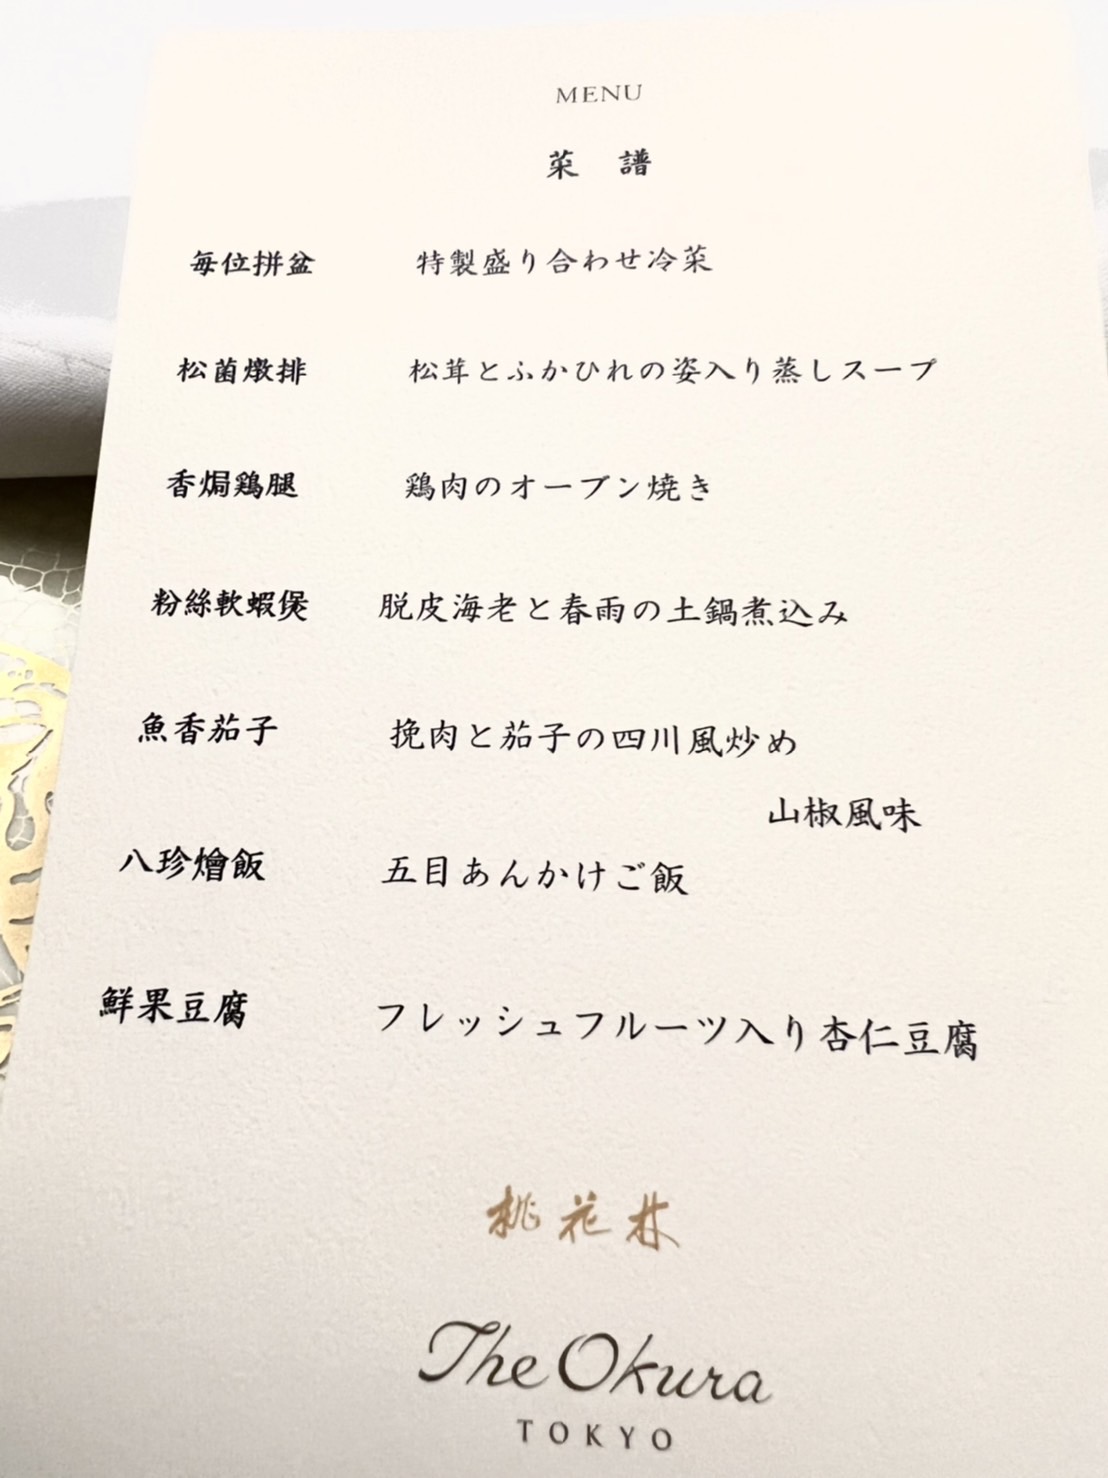 MENU
菜 譜
毎位拼盆 特製盛り合わせ冷菜
松菌燉排 松茸とふかひれの姿入り蒸しスープ
香焗鶏腿 鶏肉のオーブン焼き
粉絲軟蝦煲 脱皮海老と春雨の土鍋煮込み
魚香茄子 挽肉と茄子の四川風炒め
山椒風味
八珍燴飯 五目あんかけご飯
鮮果豆腐 フレッシュフルーツ入り杏仁豆腐
桃花林
The Okura
TOKYO